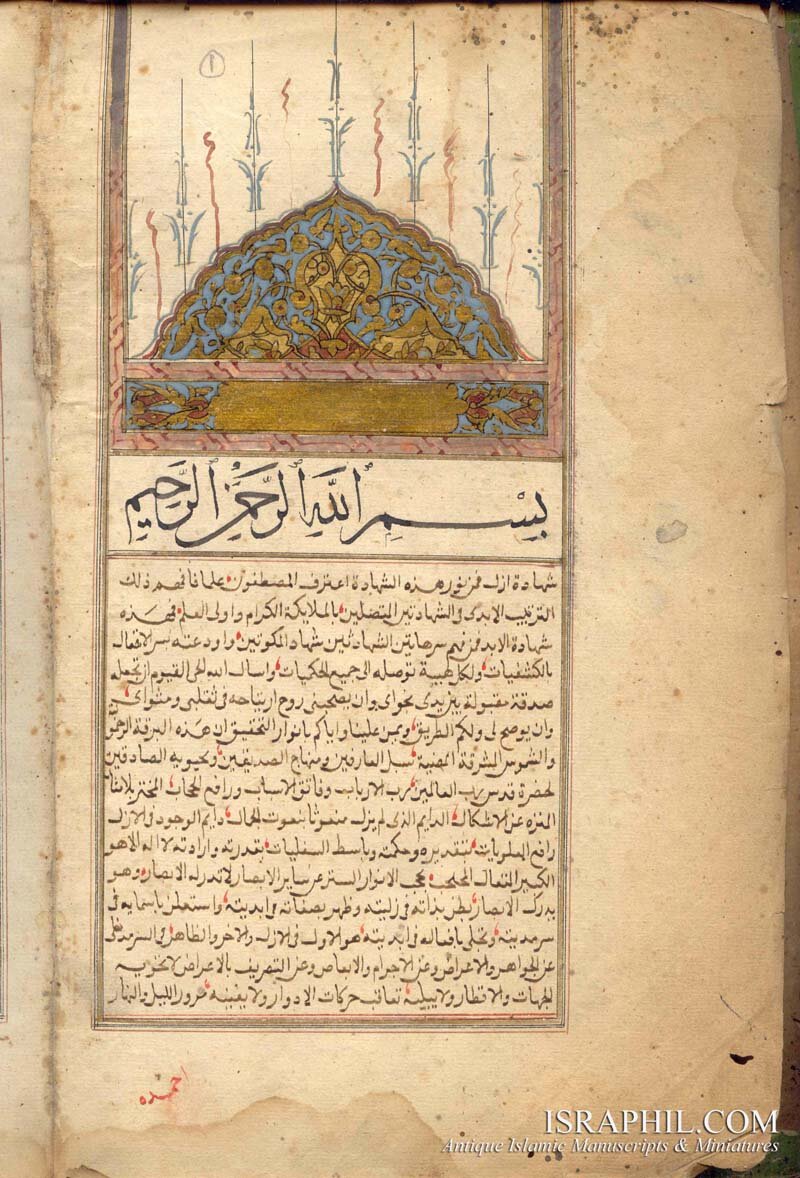 ١
بِسْمِ اللَّهِ الرَّحْمَنِ الرَّحِيمِ
شهادة ازل فمن نور هذه الشهادة اعترف المصطفون علما فافهم ذلك
الترتيب الابدى فى الشهادتين المتصلين بالملايكة الكرام واولى العلم فهذه
شهادة الابد فمن فهم سر هاتين الشهادتين شهاد المكونين واودعته سر الافعال
بالكشفيات ولكل هيبة توصله الى جميع الحكميات واسال الله الحى القيوم ان يجعله
صدقة مقبولة بين يدى نجواى وان يصحبنى روح ارتياحه فى تقلبى ومثواى
وان يوضح لى ولكم الطريق ويمن علينا واياكم بانوار التحقيق ان هذه البرقة
والشموس المشرقة المضية سبل العارفين ومنهاج الصديقين ويحبوبه الصادقين
لحضرة قدس رب العالمين رب الارباب وفاتق الاسباب ورافع الحجاب
المنزه عن الاشكال الدايم الذى لم يزل منعوتا بنعوت الجمال دايم الوجود فى الازل
رافع العلويات بتقديره وحكمته وباسط السفليات بقدرته وارادته لا اله الا هو
الكبير المتعال المحتجب بحجب الانوار المستتر عن ساير الابصار لا تدركه الابصار وهو
يدرك الابصار بطن بذاته فى ازليته وظهر بصفاته فى ابديته واستعلن باسمايه فى
سرمديته وتجلى بافعاله فى ابديته هو الاول فى الازل والاخر والظاهر فى السرمد
عن الجواهر والاعراض وعن الاجرام والابعاض وعن التعريف بالاعراض لا تحويه
الجهات والاقطار ولا يبليه تعاقب حركات الادوار ولا يفنيه مرور الليل والنهار
احمده
ISRAPHIL.COM
Antique Islamic Manuscripts & Miniatures